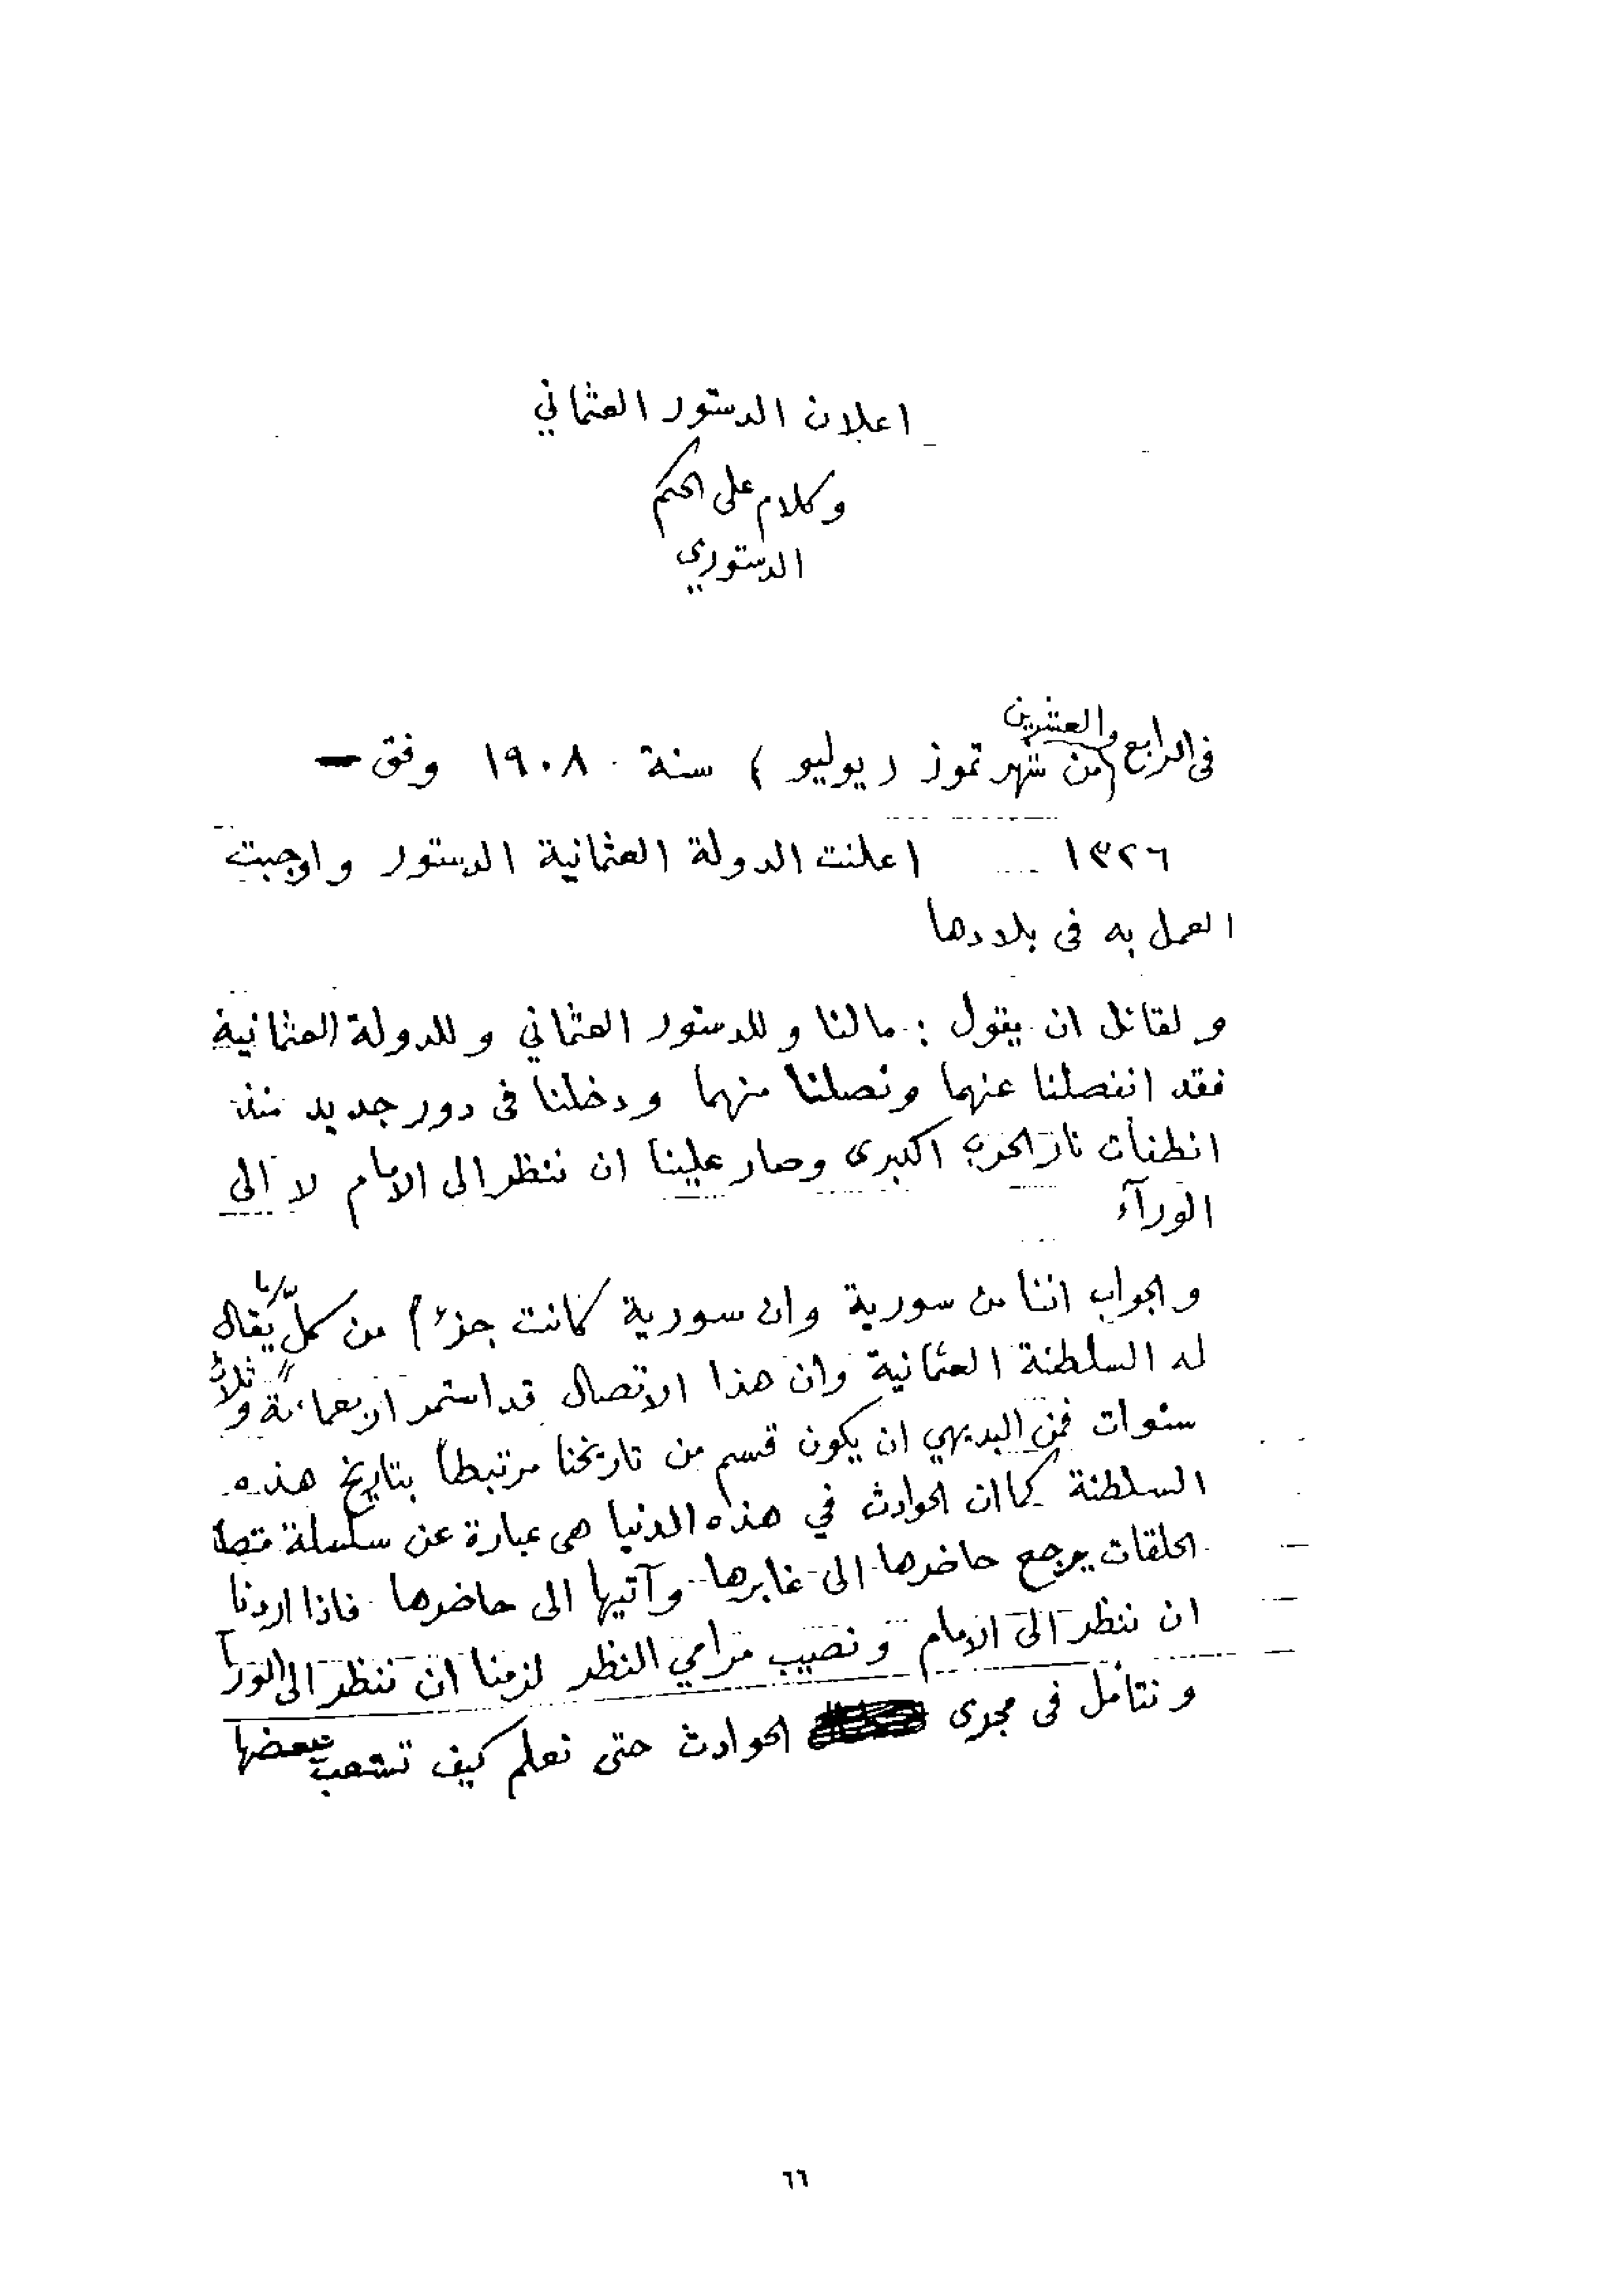 اعلان الدستور العثماني
وكلام على الحكم
الدستوري
فى الرابع والعشرين من شهر تموز (يوليو) سنة ١٩٠٨ وفق —
١٣٢٦ اعلنت الدولة العثمانية الدستور واوجبت
العمل به فى بلادها
ولقائل ان يقول : مالنا وللدستور العثماني وللدولة العثمانية
فقد انفصلنا عنهما ونصلنا منهما ودخلنا فى دور جديد منذ
انطفأت نار الحرب الكبرى وصار علينا ان ننظر الى الامام لا الى
الورآء
والجواب اننا من سورية وان سورية كانت جزءًا من كلّ يقال
له السلطنة العثمانية وان هذا الاتصال قد استمر اربعمائة وثلاث
سنوات فمن البديهي ان يكون قسم من تاريخنا مرتبطاً بتاريخ هذه
السلطنة كما ان الحوادث في هذه الدنيا هى عبارة عن سلسلة متصلة
الحلقات يرجع حاضرها الى غابرها وآتيها الى حاضرها فاذا اردنا
ان ننظر الى الامام ونصيب مرامي النظر لزمنا ان ننظر الى الورا
ونتأمل فى مجرى الحوادث حتى نعلم كيف تشعب بعضها
٦٦